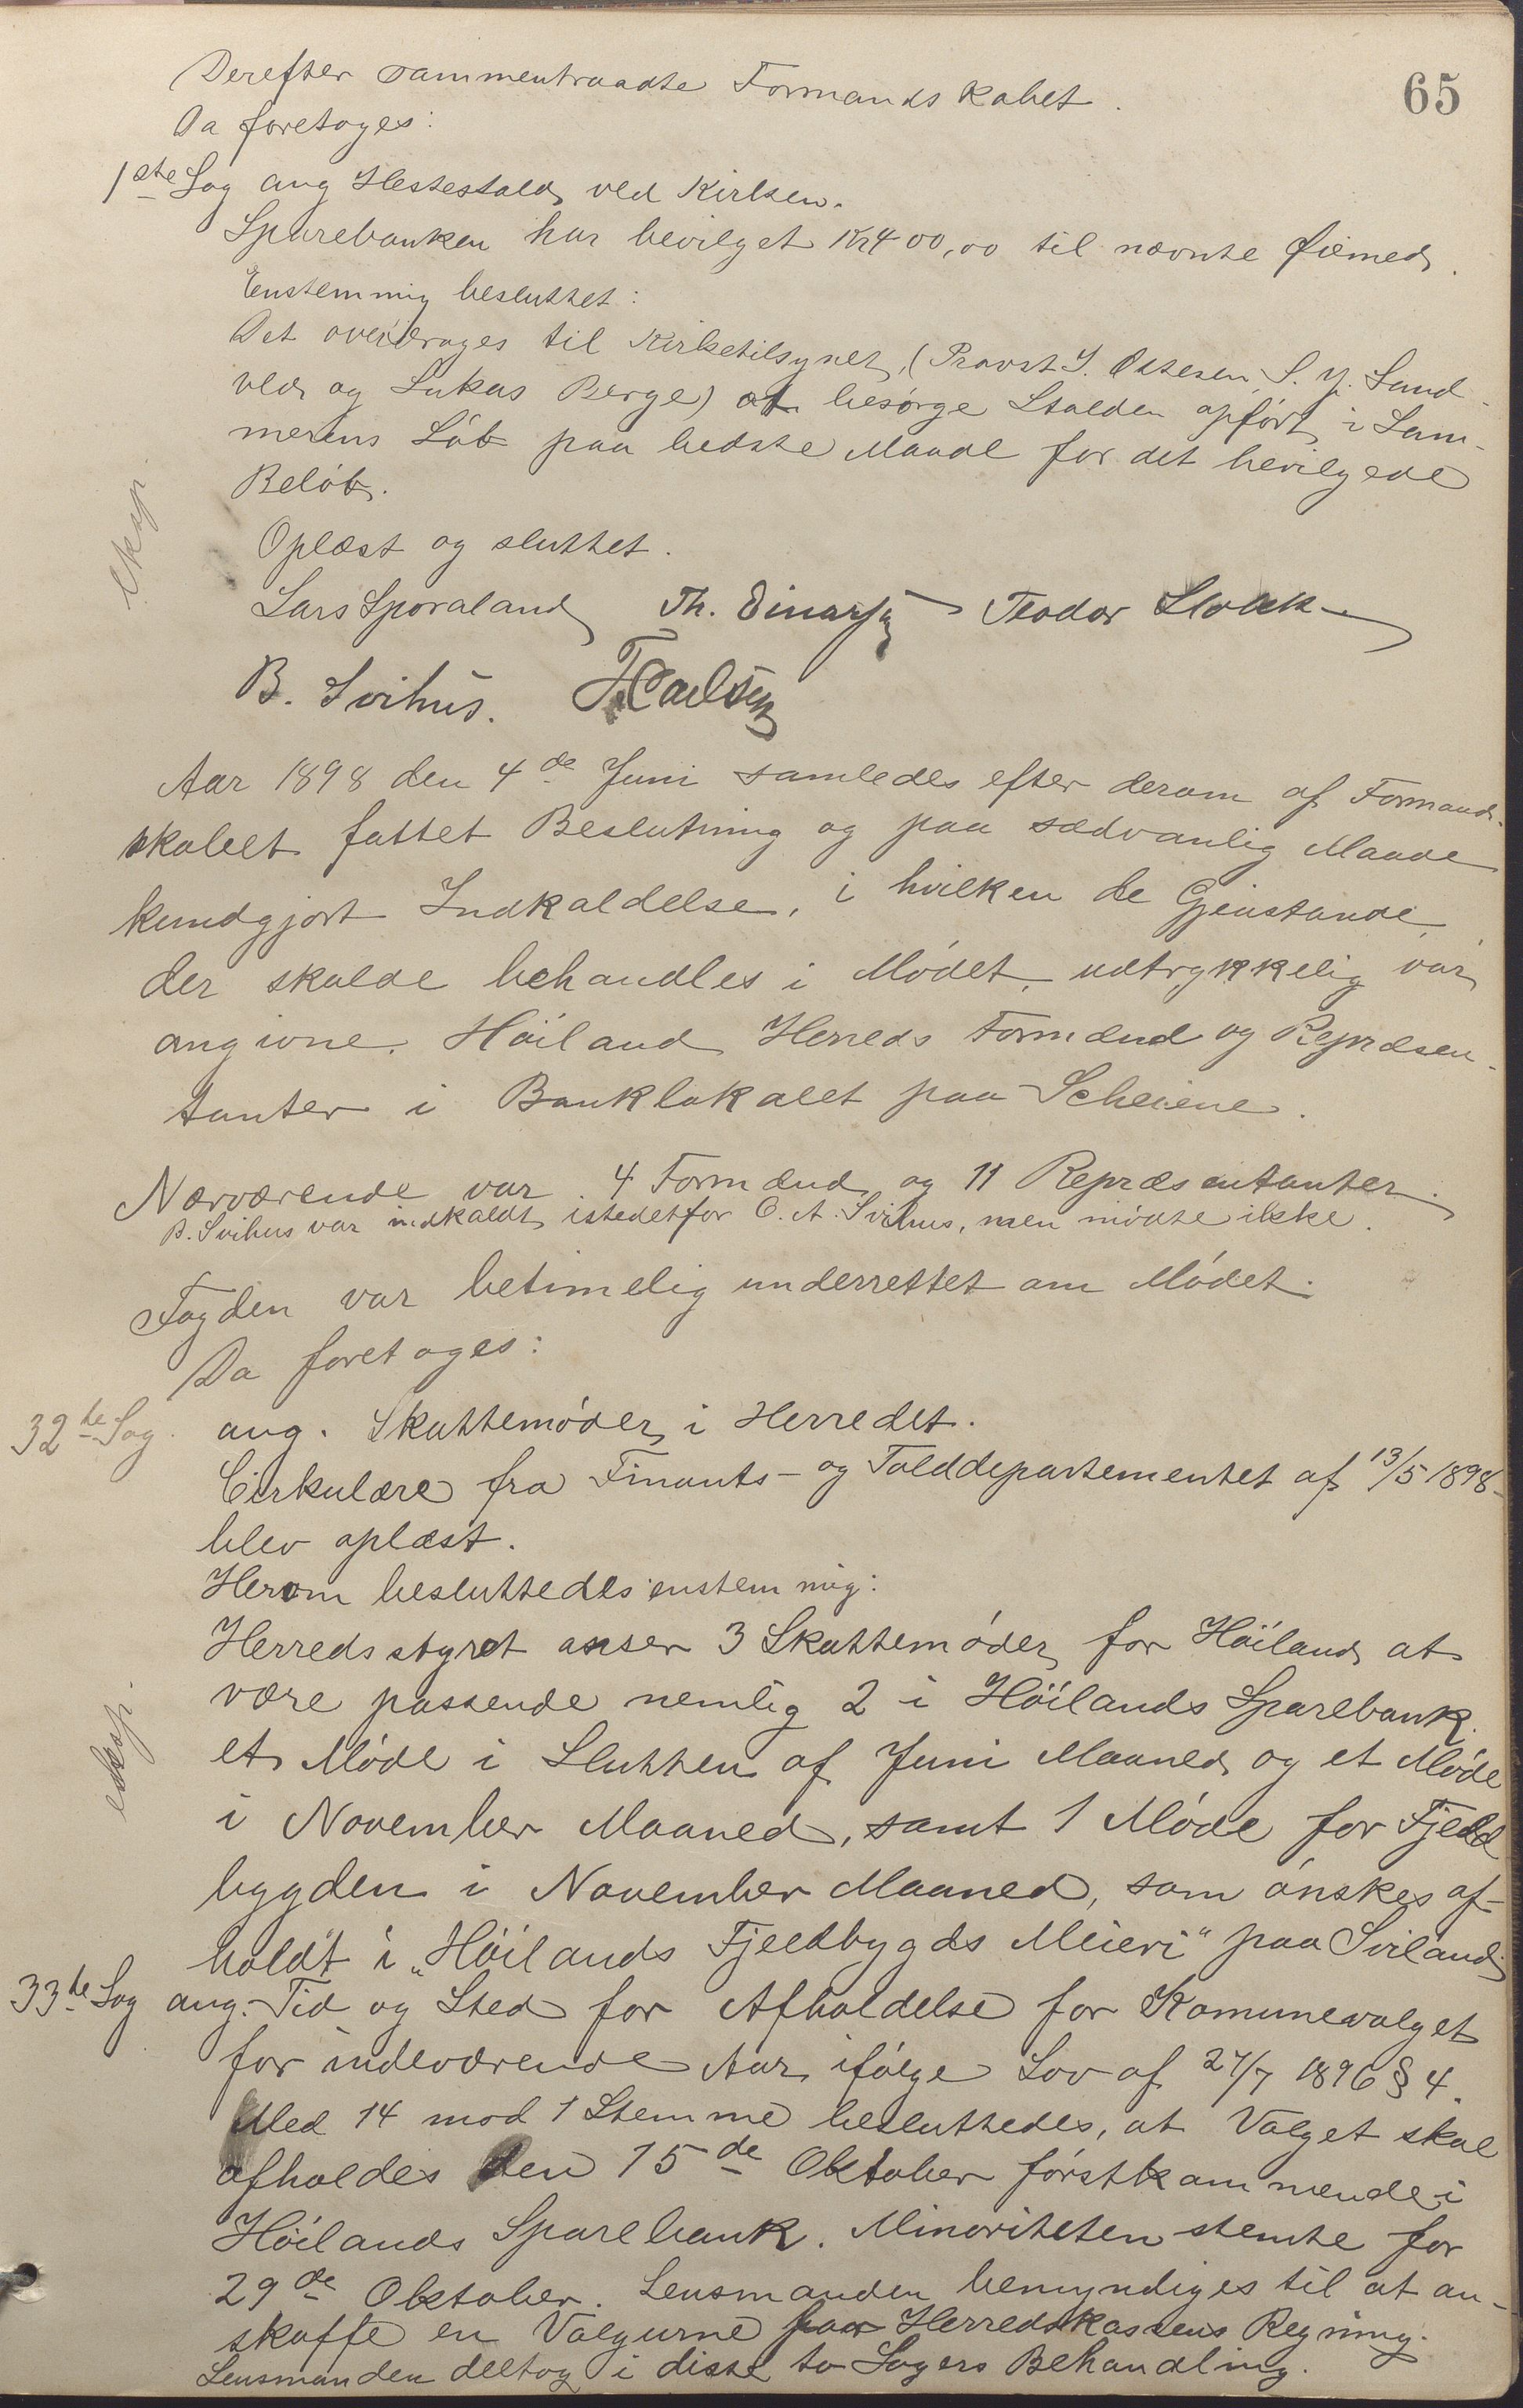 65
Derefter sammentraadte Formandskabet.
Da foretoges:
1ste Sag ang Hestestald ved Kirken.
Sparebanken har bevilget Kr 400,00 til nævnte Øiemed.
Enstemmig besluttet:
Det overdrages til Kirketilsynet, (Provst J. Ottesen, S. Y. Sand-
ved og Lukas Berge) at besørge Stalden opført i Som-
merens Løb paa bedste Maade for det bevilgede
Beløb.
Eksp.
Oplæst og sluttet.
Lars Sporaland Th. Einarsen Teodor Stokk
B. Svihus. T. Carlsen
Aar 1898 den 4de Juni samledes efter derom af Formand-
skabet fattet Beslutning og paa sædvanlig Maade
kundgjort Indkaldelse, i hvilken de Gjenstande,
der skulde behandles i Mødet, udtrykkelig var
angivne. Høiland Herreds Formænd og Repræsen-
tanter i Banklokalet paa Scheiene.
Nærværende var 4 Formænd og 11 Repræsentanter.
B. Svihus var indkaldt istedetfor O. A. Svihus, men mødte ikke.
Fogden var betimelig underrettet om Mødet.
Da foretoges:
32te Sag. ang. Skattemøder i Herredet.
Cirkulære fra Finants- og Tolddepartementet af 13/5 1898
blev oplæst.
Herom besluttedes enstemmig:
Herredsstyret anser 3 Skattemøder for Høiland at
være passende nemlig 2 i Høilands Sparebank.
et Møde i Slutten af Juni Maaned og et Møde
i November Maaned, samt 1 Møde for Fjeld
bygden i November Maaned, som ønskes af-
holdt i "Høilands Fjeldbygds Meieri" paa Sviland.
eksp.
33te Sag ang. Tid og Sted for Afholdelse for Komunevalget
for indeværende Aar ifølge Lov af 27/7 1896 § 4.
Med 14 mod 1 Stemme besluttedes, at Valget skal
afholdes den 15de Oktober førstkommende i
Høilands Sparebank. Minoriteten stemte for
29de Oktober. Lensmanden bemyndiges til at an-
skaffe en Valgurne paa Herredskassens Regning.
Lensmanden deltog i disse to Sagers Behandling.